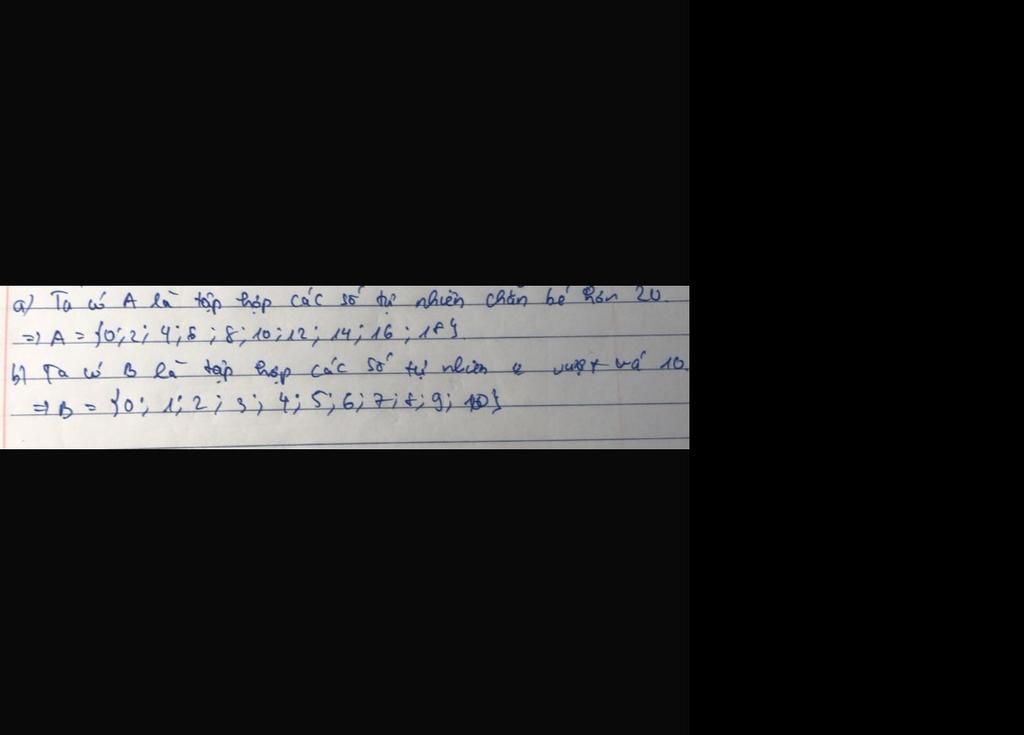 a) Ta có A là tập hợp các số tự nhiên chẵn bé hơn 20.
=> A = {0; 2; 4; 6; 8; 10; 12; 14; 16; 18}.
b) Ta có B là tập hợp các số tự nhiên vượt quá 10.
=> B = {0; 1; 2; 3; 4; 5; 6; 7; 8; 9; 10}